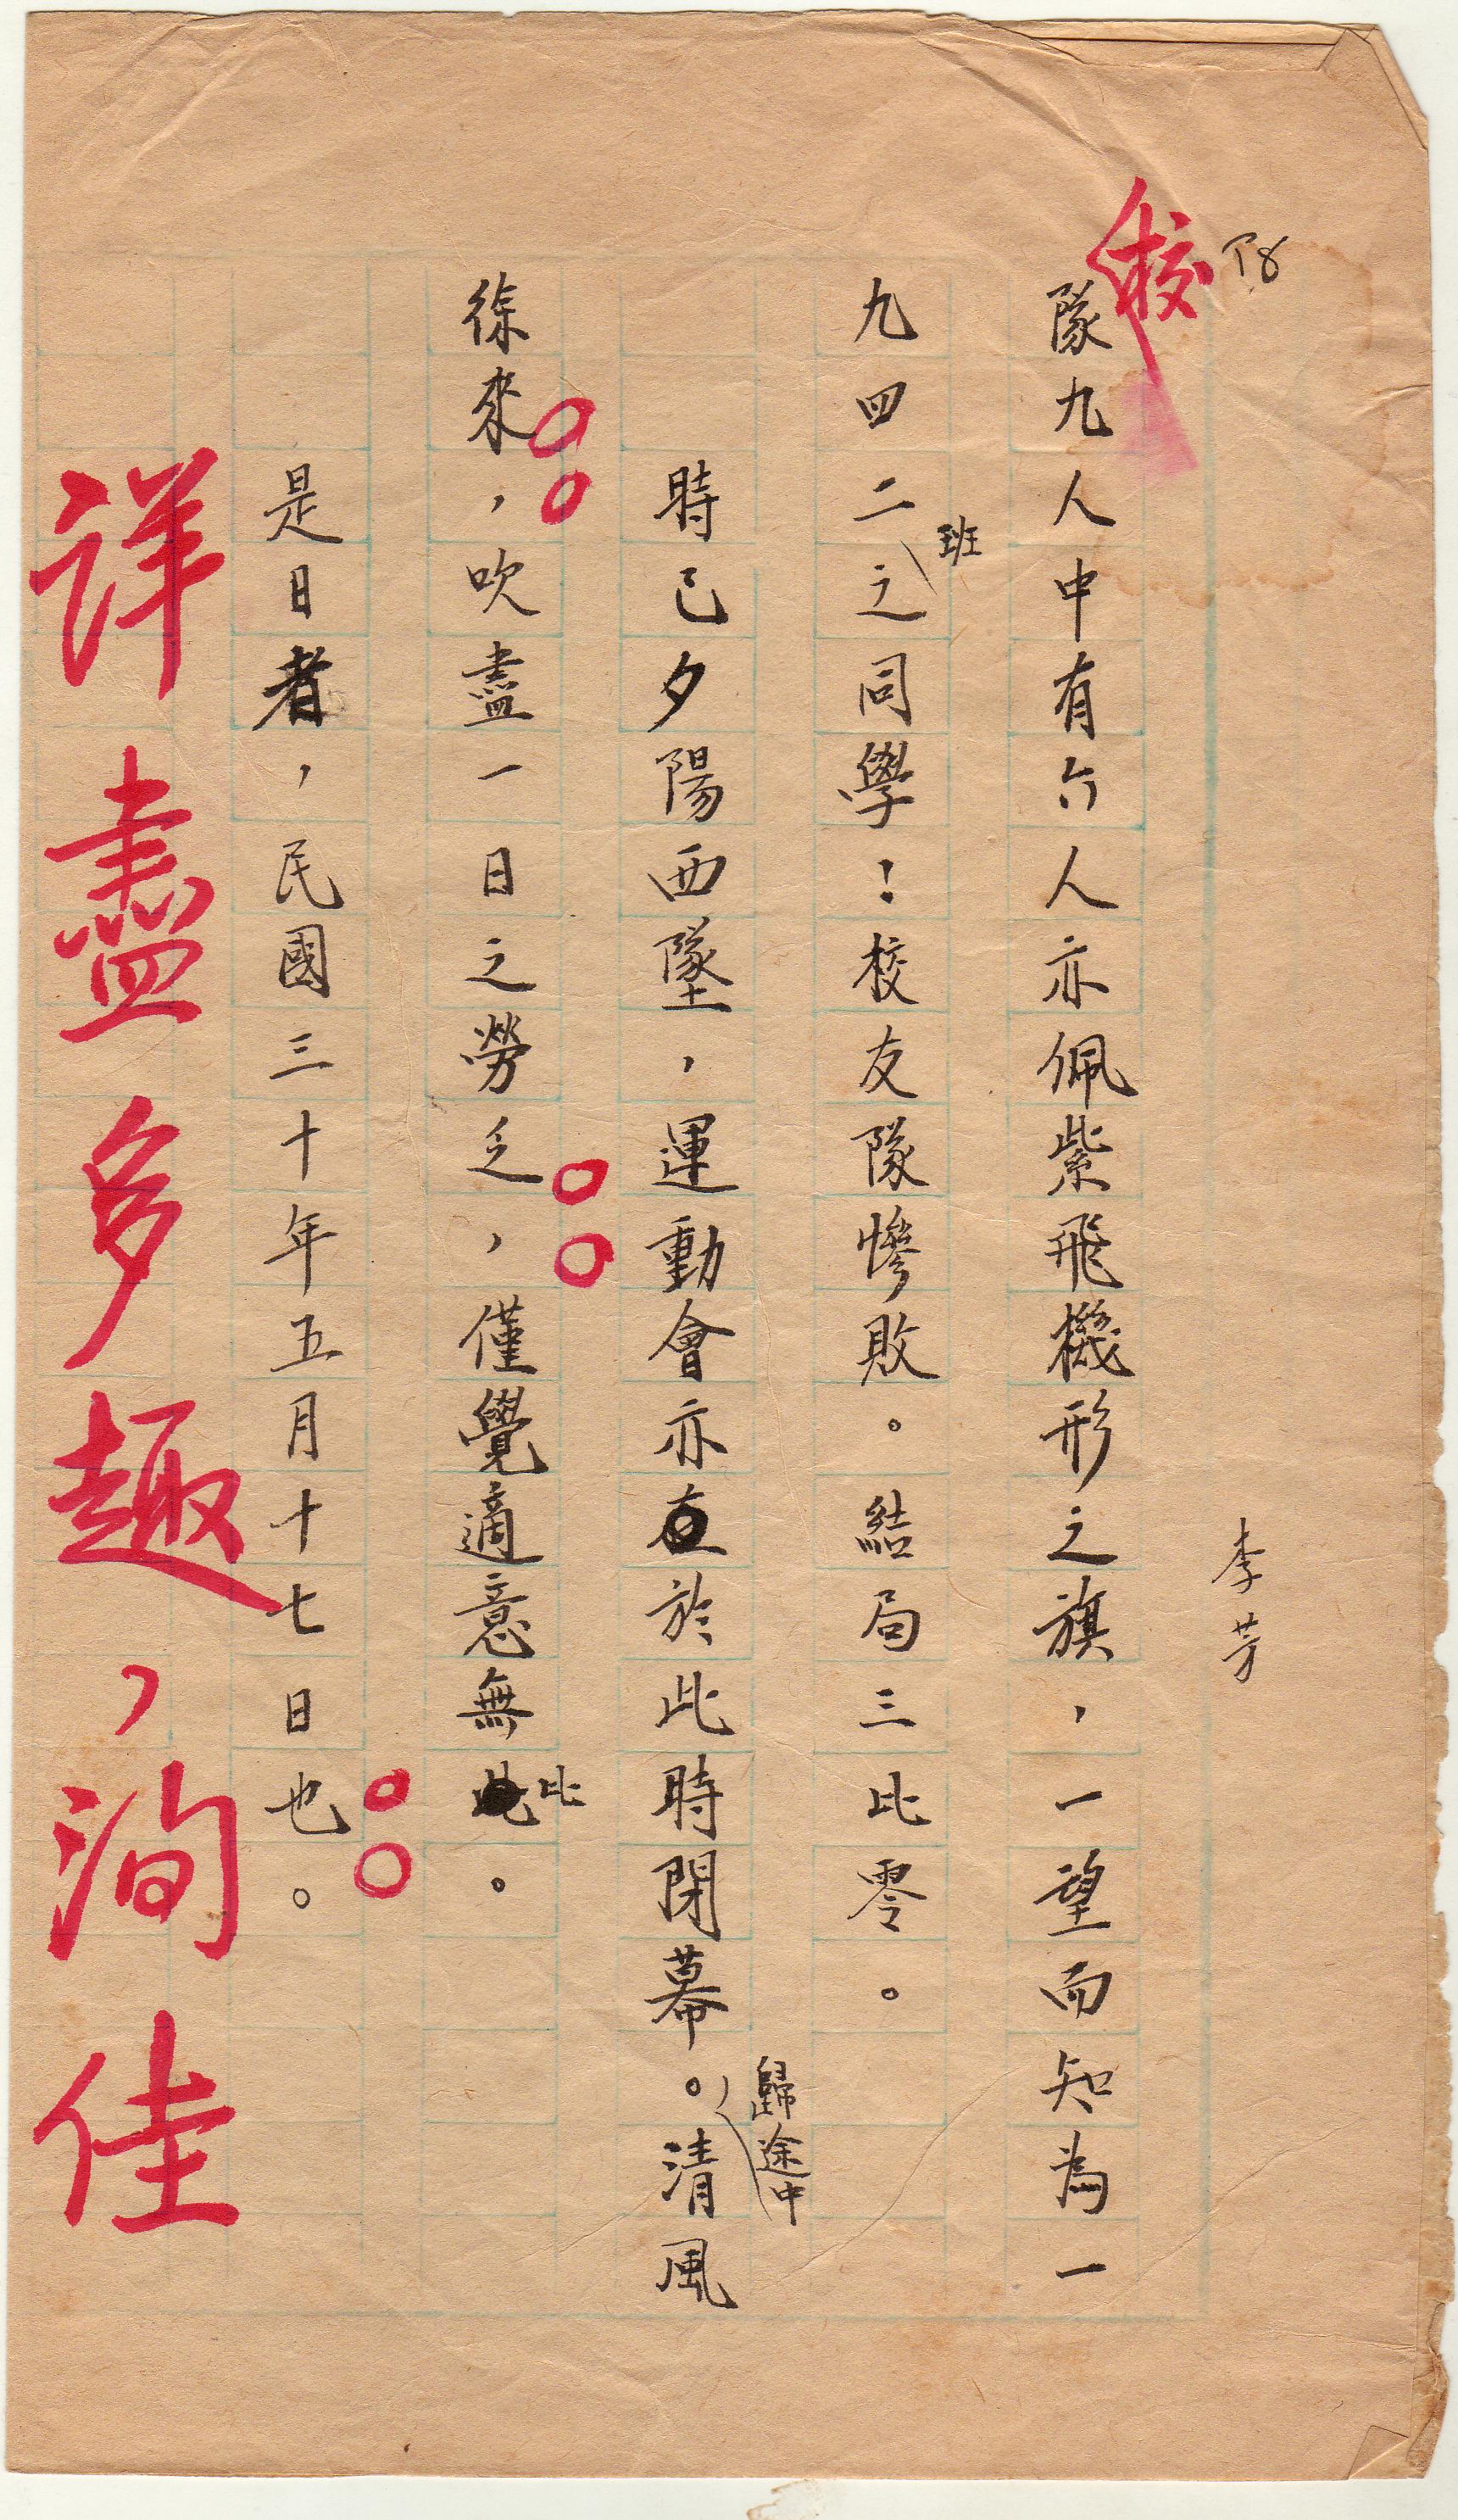 T8
李芳
校
隊九人中有六人亦佩紫飛機形之旗，一望而知為一
九四二班之同學！校友隊慘敗。結局三比零。
時已夕陽西墜，運動會亦在於此時閉幕。歸途中，清風
徐來，吹盡一日之勞乏，僅覺適意無比。
是日者，民國三十年五月十七日也。
詳盡多趣，洵佳